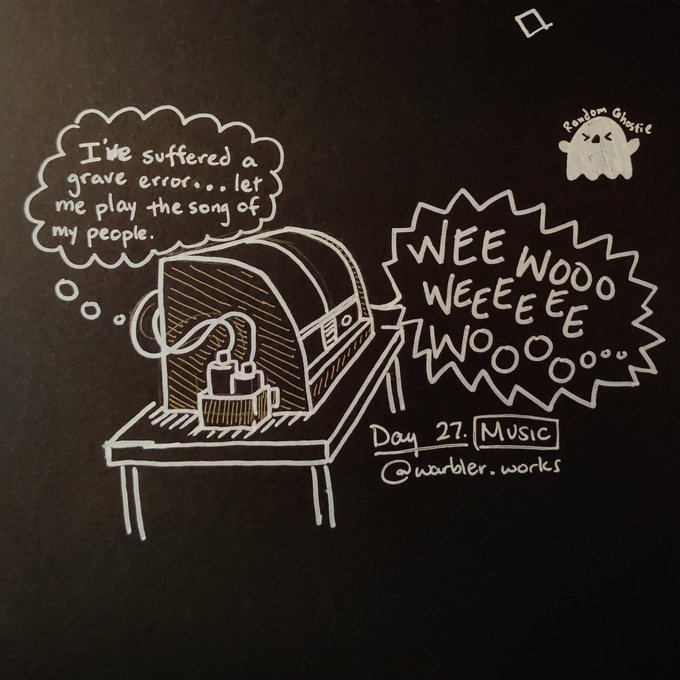 Random Ghostie
I've suffered a
grave error... let
me play the song of
my people.
WEE WOOO
WEEEEEE
WOOOOooo
Day 27. Music
@warbler.works